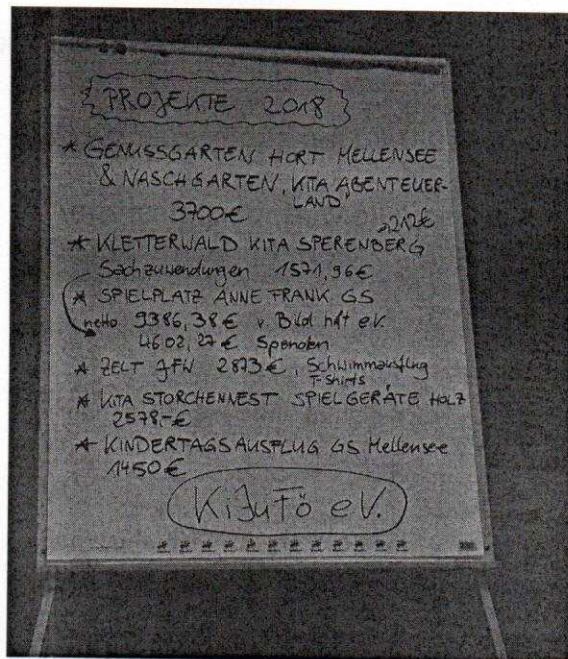 PROJEKTE 2018
* GENUSSGARTEN HORT MELLENSEE
& NASCHGARTEN, KITA ABENTEUER-
LAND'
3700€
212€
* KLETTERWALD KITA SPERENBERG
Sachzuwendungen 1571,96€
* SPIELPLATZ ANNE FRANK GS
netto 9386,38€ v. Bild hilft e.V.
4602,27€ Spenden
* ZELT JFW 2873€, Schwimmausflug
T-Shirts
* KITA STORCHENNEST SPIELGERÄTE HOLZ
2578,-€
* KINDERTAGSAUSFLUG GS Mellensee
1450€
KiJuFö e.V.